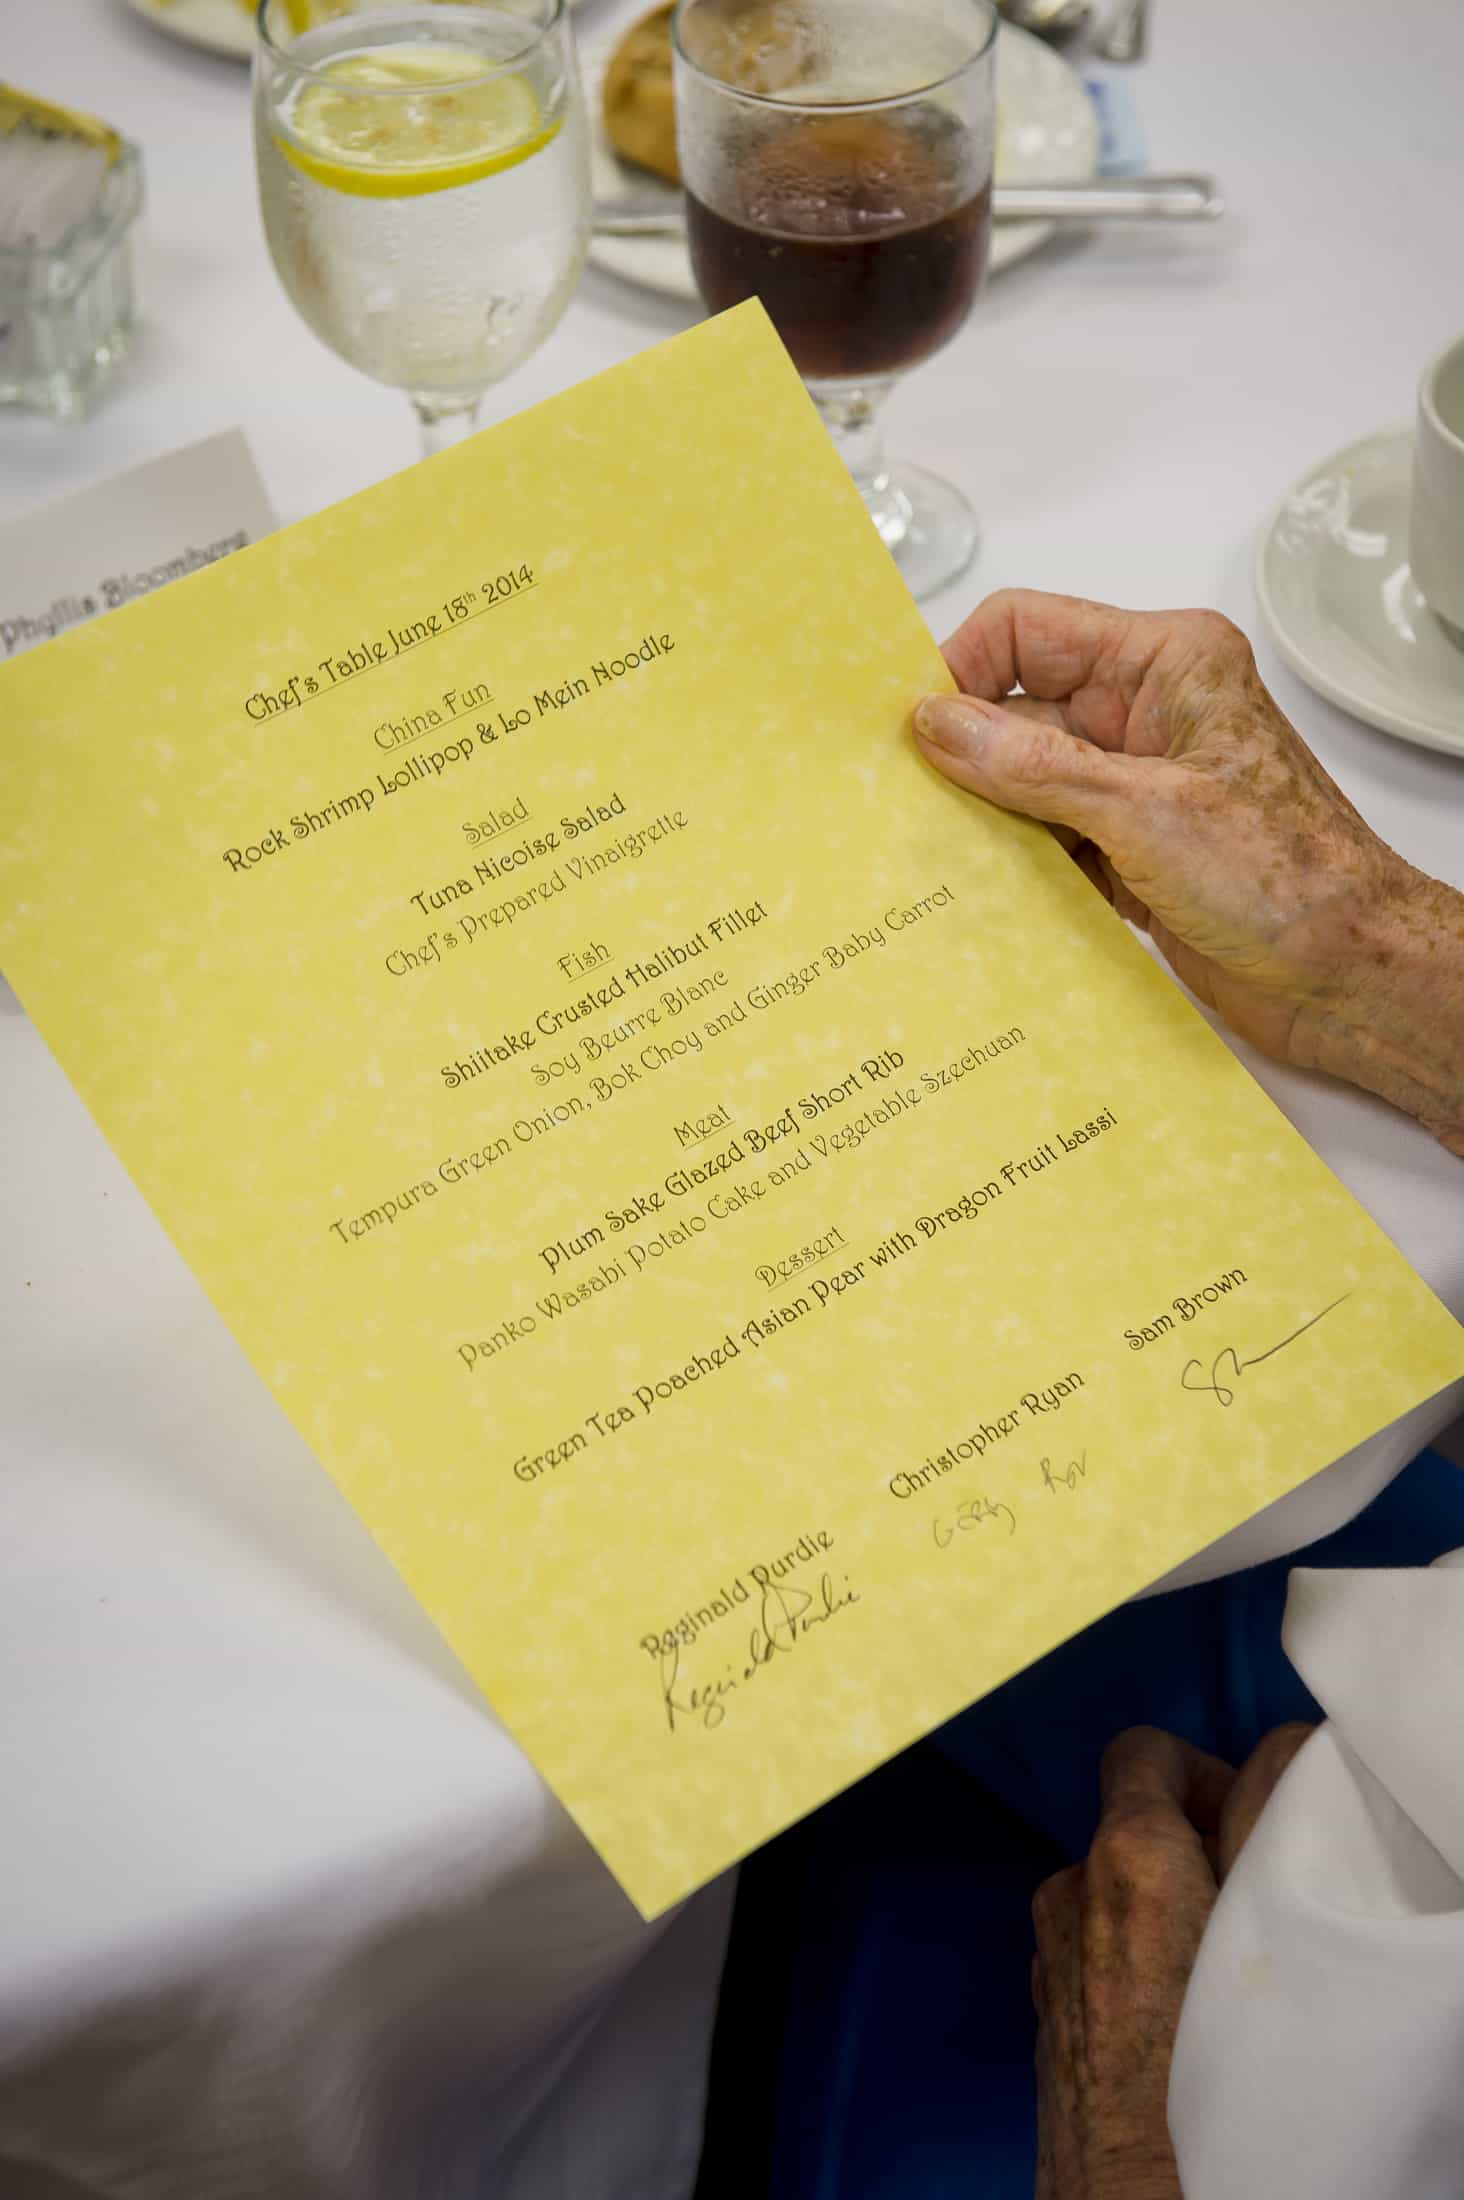 Phyllis Bloomberg
Chef's Table June 18th 2014
China Fun
Rock Shrimp Lollipop & Lo Mein Noodle
Salad
Tuna Nicoise Salad
Chef's Prepared Vinaigrette
Fish
Shiitake Crusted Halibut Fillet
Soy Beurre Blanc
Tempura Green Onion, Bok Choy and Ginger Baby Carrot
Meat
Plum Sake Glazed Beef Short Rib
Panko Wasabi Potato Cake and Vegetable Szechuan
Dessert
Green Tea Poached Asian Pear with Dragon Fruit Lassi
Reginald Purdie Christopher Ryan Sam Brown
Reginald Purdie